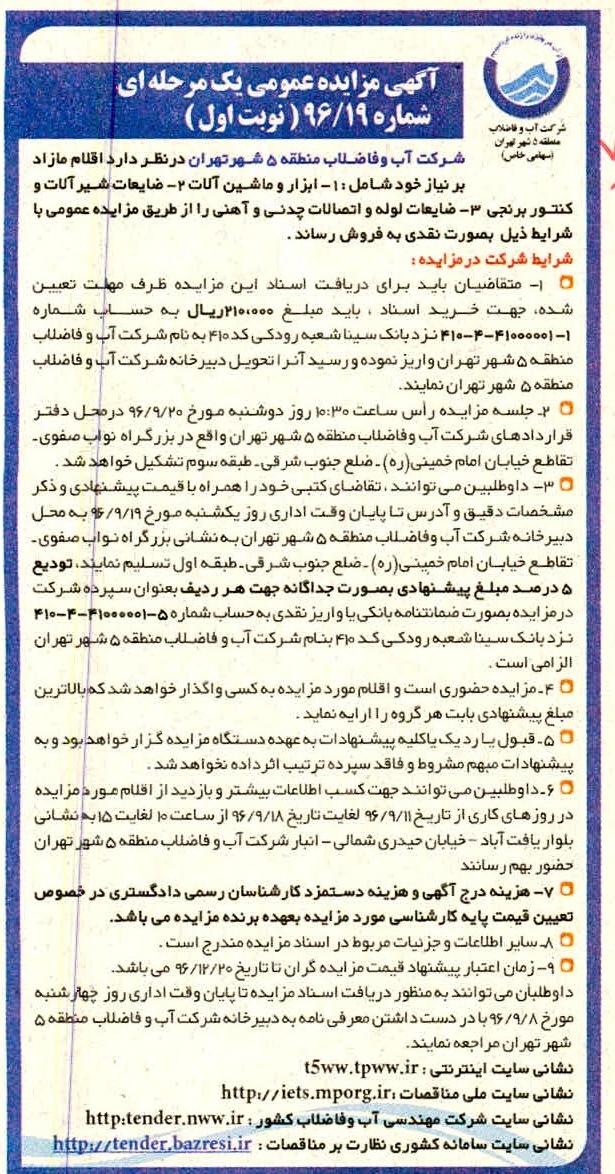 شرکت آب و فاضلاب
منطقه ۵ شهر تهران
(سهامی خاص)
آگهی مزایده عمومی یک مرحله ای
شماره ۹۶/۱۹ (نوبت اول)
شرکت آب و فاضلاب منطقه ۵ شهر تهران در نظر دارد اقلام مازاد
بر نیاز خود شامل : ۱- ابزار و ماشین آلات ۲- ضایعات شیرآلات و
کنتور برنجی ۳- ضایعات لوله و اتصالات چدنی و آهنی را از طریق مزایده عمومی با
شرایط ذیل بصورت نقدی به فروش رساند .
شرایط شرکت در مزایده :
۱- متقاضیان باید برای دریافت اسناد این مزایده ظرف مهلت تعیین
شده، جهت خرید اسناد ، باید مبلغ ۲۱۰،۰۰۰ریال به حساب شماره
۴۱۰-۴-۴۱۰۰۰۰۰۱-۱ نزد بانک سینا شعبه رودکی کد ۴۱۰ به نام شرکت آب و فاضلاب
منطقه ۵ شهر تهران واریز نموده و رسید آنرا تحویل دبیرخانه شرکت آب و فاضلاب
منطقه ۵ شهر تهران نمایند.
۲ـ جلسه مزایده رأس ساعت ۱۰:۳۰ روز دوشنبه مورخ ۹۶/۹/۲۰ در محل دفتر
قراردادهای شرکت آب وفاضلاب منطقه ۵ شهر تهران واقع در بزرگراه نواب صفوی ـ
تقاطع خیابان امام خمینی(ره) ـ ضلع جنوب شرقی ـ طبقه سوم تشکیل خواهد شد .
۳- داوطلبین می توانند ، تقاضای کتبی خود را همراه با قیمت پیشنهادی و ذکر
مشخصات دقیق و آدرس تا پایان وقت اداری روز یکشنبه مورخ ۹۶/۹/۱۹ به محل
دبیرخانه شرکت آب وفاضلاب منطقه ۵ شهر تهران به نشانی بزرگراه نواب صفوی ـ
تقاطع خیابان امام خمینی(ره) ـ ضلع جنوب شرقی ـ طبقه اول تسلیم نمایند، تودیع
۵ درصد مبلغ پیشنهادی بصورت جداگانه جهت هر ردیف بعنوان سپرده شرکت
در مزایده بصورت ضمانتنامه بانکی یا واریز نقدی به حساب شماره ۴۱۰-۴-۴۱۰۰۰۰۰۱-۵
نزد بانک سینا شعبه رودکی کد ۴۱۰ بنام شرکت آب و فاضلاب منطقه ۵ شهر تهران
الزامی است .
۴ـ مزایده حضوری است و اقلام مورد مزایده به کسی واگذار خواهد شد که بالاترین
مبلغ پیشنهادی بابت هر گروه را ارایه نماید .
۵ـ قبول یا رد یک یا کلیه پیشنهادات به عهده دستگاه مزایده گزار خواهد بود و به
پیشنهادات مبهم مشروط و فاقد سپرده ترتیب اثر داده نخواهد شد .
۶ـ داوطلبین می توانند جهت کسب اطلاعات بیشتر و بازدید از اقلام مورد مزایده
در روزهای کاری از تاریخ ۹۶/۹/۱۱ لغایت تاریخ ۹۶/۹/۱۸ از ساعت ۱۰ لغایت ۱۵ به نشانی
بلوار یافت آباد - خیابان حیدری شمالی - انبار شرکت آب و فاضلاب منطقه ۵ شهر تهران
حضور بهم رسانند
۷- هزینه درج آگهی و هزینه دستمزد کارشناسان رسمی دادگستری در خصوص
تعیین قیمت پایه کارشناسی مورد مزایده بعهده برنده مزایده می باشد.
۸ـ سایر اطلاعات و جزئیات مربوط در اسناد مزایده مندرج است .
۹- زمان اعتبار پیشنهاد قیمت مزایده گران تا تاریخ ۹۶/۱۲/۲۰ می باشد.
داوطلبان می توانند به منظور دریافت اسناد مزایده تا پایان وقت اداری روز چهارشنبه
مورخ ۹۶/۹/۸ با در دست داشتن معرفی نامه به دبیرخانه شرکت آب و فاضلاب منطقه ۵
شهر تهران مراجعه نمایند.
نشانی سایت اینترنتی : t5ww.tpww.ir
نشانی سایت ملی مناقصات : http://iets.mporg.ir
نشانی سایت شرکت مهندسی آب وفاضلاب کشور : http:tender.nww.ir
نشانی سایت سامانه کشوری نظارت بر مناقصات : http://tender.bazresi.ir